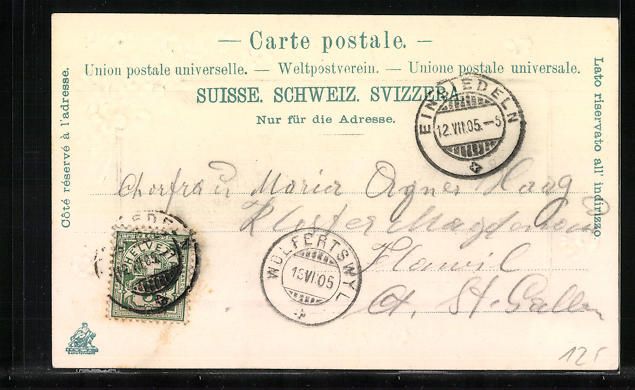 — Carte postale. —
Union postale universelle. — Weltpostverein. — Unione postale universale.
SUISSE. SCHWEIZ. SVIZZERA.
Nur für die Adresse.
Côté réservé à l'adresse.
Lato riservato all' indirizzo
EINSIEDELN
12.VII.05.-5
Chorfrau Maria Agnes Haag
Kloster Magdenau
Flawil
Ct. St. Gallen
HELVETIA
WOLFERTSWYL
13 VII 05
125